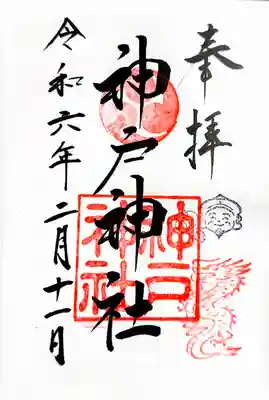 奉拝
神戸神社
神戸神社
令和六年二月十一日